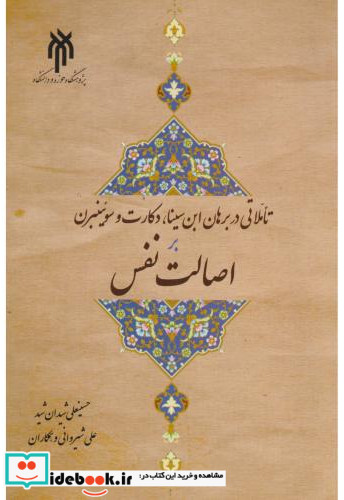 پژوهشگاه حوزه و دانشگاه
تأملاتی در برهان ابن سینا، دکارت و سوئینبرن
بر
اصالت نفس
حسینعلی شیدان شید
علی شیروانی و همکاران
مشاهده و خرید این کتاب در:
idebook.ir